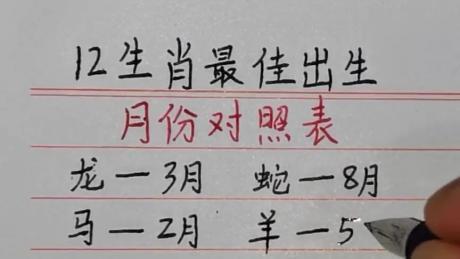 12生肖最佳出生
月份对照表
龙一3月 蛇一8月
马一2月 羊一5